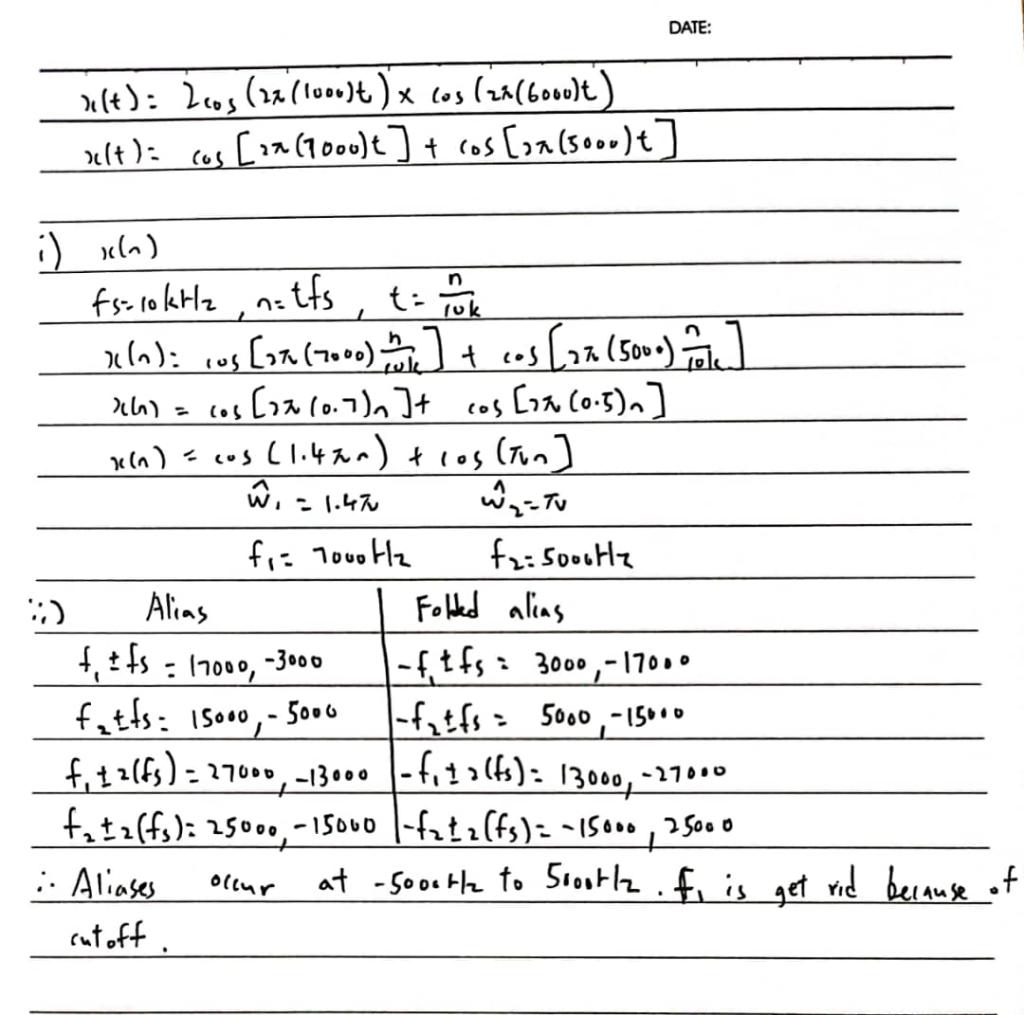 DATE:
x(t) = 2cos(2π(1000)t) × cos(2π(6000)t)
x(t) = cos[2π(7000)t] + cos[2π(5000)t]
i) x(n)
fs=10kHz , n=tfs , t= n/10k
x(n)= cos[2π(7000) n/10k] + cos[2π(5000) n/10k]
x(n) = cos[2π(0.7)n] + cos[2π(0.5)n]
x(n) = cos(1.4πn) + cos(πn]
ŵ₁ = 1.4π ŵ₂=π
f₁= 7000Hz f₂=5000Hz
ii) Alias Folded alias
f₁±fs = 17000, -3000 -f₁±fs = 3000, -17000
f₂±fs= 15000, -5000 -f₂±fs = 5000, -15000
f₁±2(fs) = 27000, -13000 -f₁±2(fs)= 13000, -27000
f₂±2(fs)= 25000, -15000 -f₂±2(fs)= -15000, 25000
∴ Aliases occur at -5000Hz to 5000Hz. f₁ is get rid because of
cutoff.